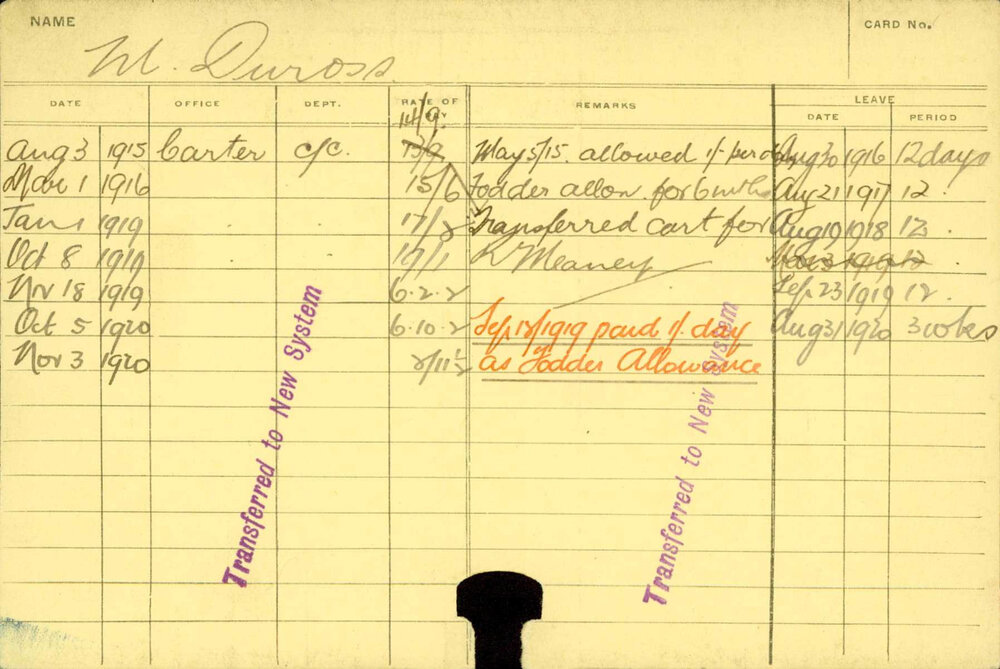 NAME
CARD No.
M. Duross.
DATE OFFICE DEPT. RATE OF REMARKS LEAVE
DATE PERIOD
14/9.
Aug 3 1915 Carter c/c. 13/9 May 5/15. allowed 1/- per day Aug 30 1916 12 days
Mar 1 1916 15/6 Fodder allow. for 6 mths Aug 21 1917 12
Jan 1 1919 17/ Transferred cart for Aug 19 1918 12.
Oct 8 1919 19/1 Meaney 1919 12
Nov 18 1919 6.2.2 Sep 23 1919 12.
Oct 5 1920 6.10.2 Sep 18/1919 paid 1/- day Aug 31 1920 3 wks
Nov 3 1920 as Fodder Allowance
Transferred to New System
Transferred to New System